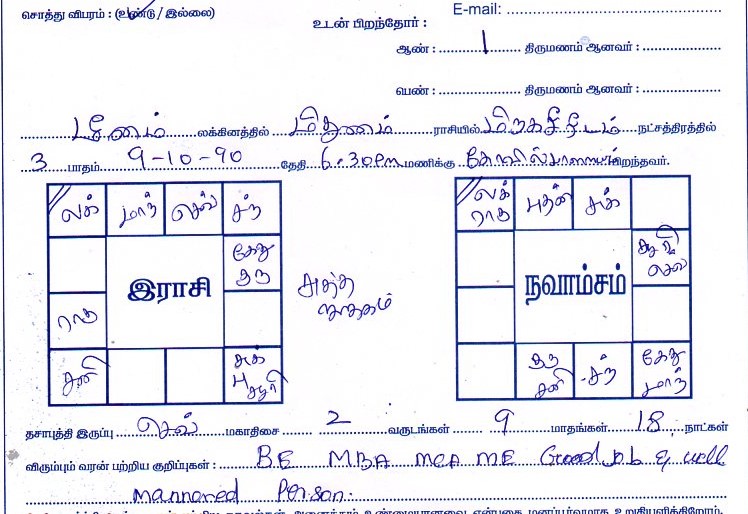 சொத்து விபரம் : (உண்டு / இல்லை)
E-mail:
உடன் பிறந்தோர் :
ஆண் : 1 திருமணம் ஆனவர் :
பெண் : திருமணம் ஆனவர் :
மீனம் லக்கினத்தில் மிதுனம் ராசியில் மிருகசீரிடம் நட்சத்திரத்தில்
3 பாதம் 9-10-90 தேதி 6.30 PM மணிக்கு பிறந்தவர்.
லக் மாந் செவ் சந்
கேது
குரு
இராசி
ராகு
சனி சுக்
பு
சூரி
லக்
ராகு புதன் சுக்
சூரி
செவ்
நவாம்சம்
குரு
சனி சந் கேது
மாந்
தசாபுத்தி இருப்பு செவ் மகாதிசை 2 வருடங்கள் 9 மாதங்கள் 18 நாட்கள்
விரும்பும் வரன் பற்றிய குறிப்புகள் : BE MBA MCA ME Good job & well
mannored Person.